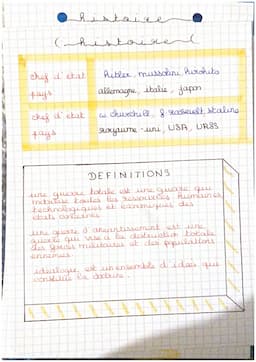 histoire
(histoire(
chef d'etat hitler, mussolini, hirohito
pays allemagne, italie, japon
chef d'etat w churchill, f roosevelt, staline
pays royaume-uni, USA, URSS
DEFINITIONS
une guerre totale est une guerre qui
mobilise toutes les ressources humaines
technologiques et economiques des
etats concernés
une guerre d'aneantissement est une
guerre qui vise a la destruction totale
des forces militaires et des populations
ennemies
ideologie est un ensemble d'idées qui
constitue la